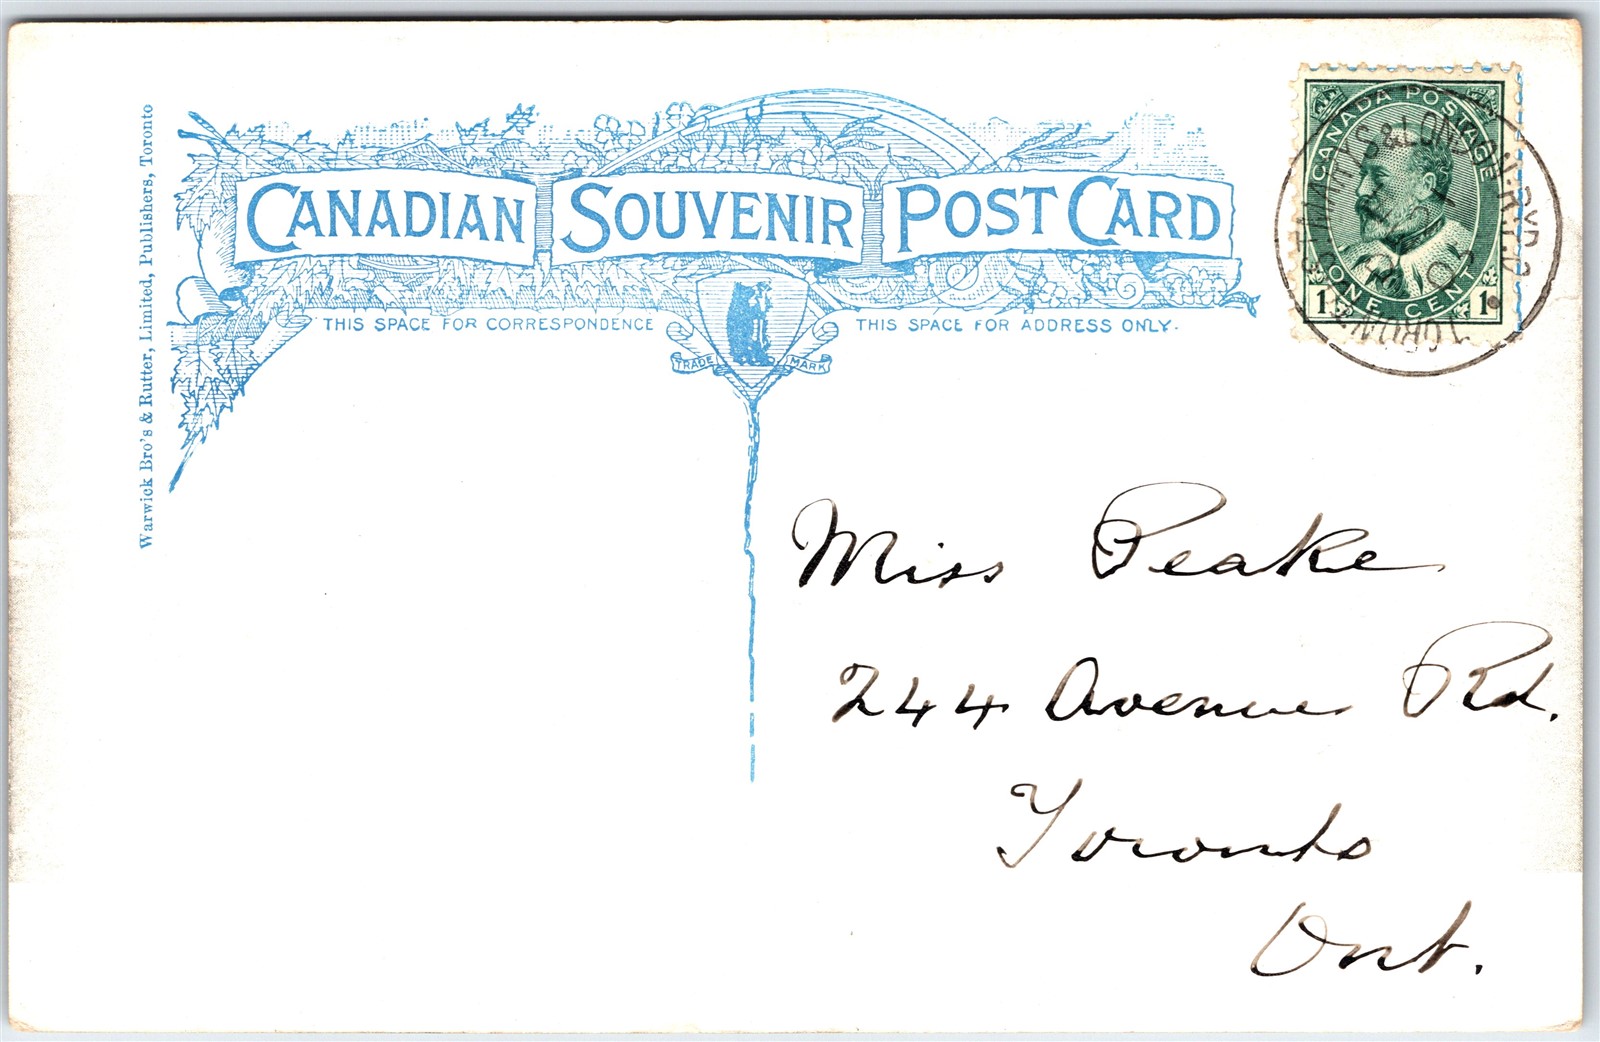 CANADIAN SOUVENIR POST CARD
THIS SPACE FOR CORRESPONDENCE
THIS SPACE FOR ADDRESS ONLY.
TRADE MARK
Warwick Bro's & Rutter, Limited, Publishers, Toronto
CANADA POSTAGE
1 ONE CENT 1
& LONDON
Miss Peake
244 Avenue Rd.
Toronto
Ont.